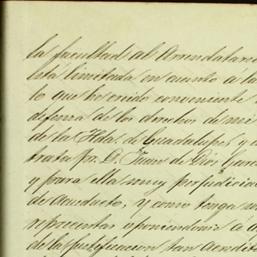 la facultad al Arrendatario
está limitada en cuanto a la
lo que he creido conveniente
defensa de los derechos de mi
de la Hda. de Guadalupe, y
trata pa. D. Juan de Dios Garc
y para ella muy perjudicial
de aqueducto, y como tenga
representar oponiendome á
de la justificacion tan acredit